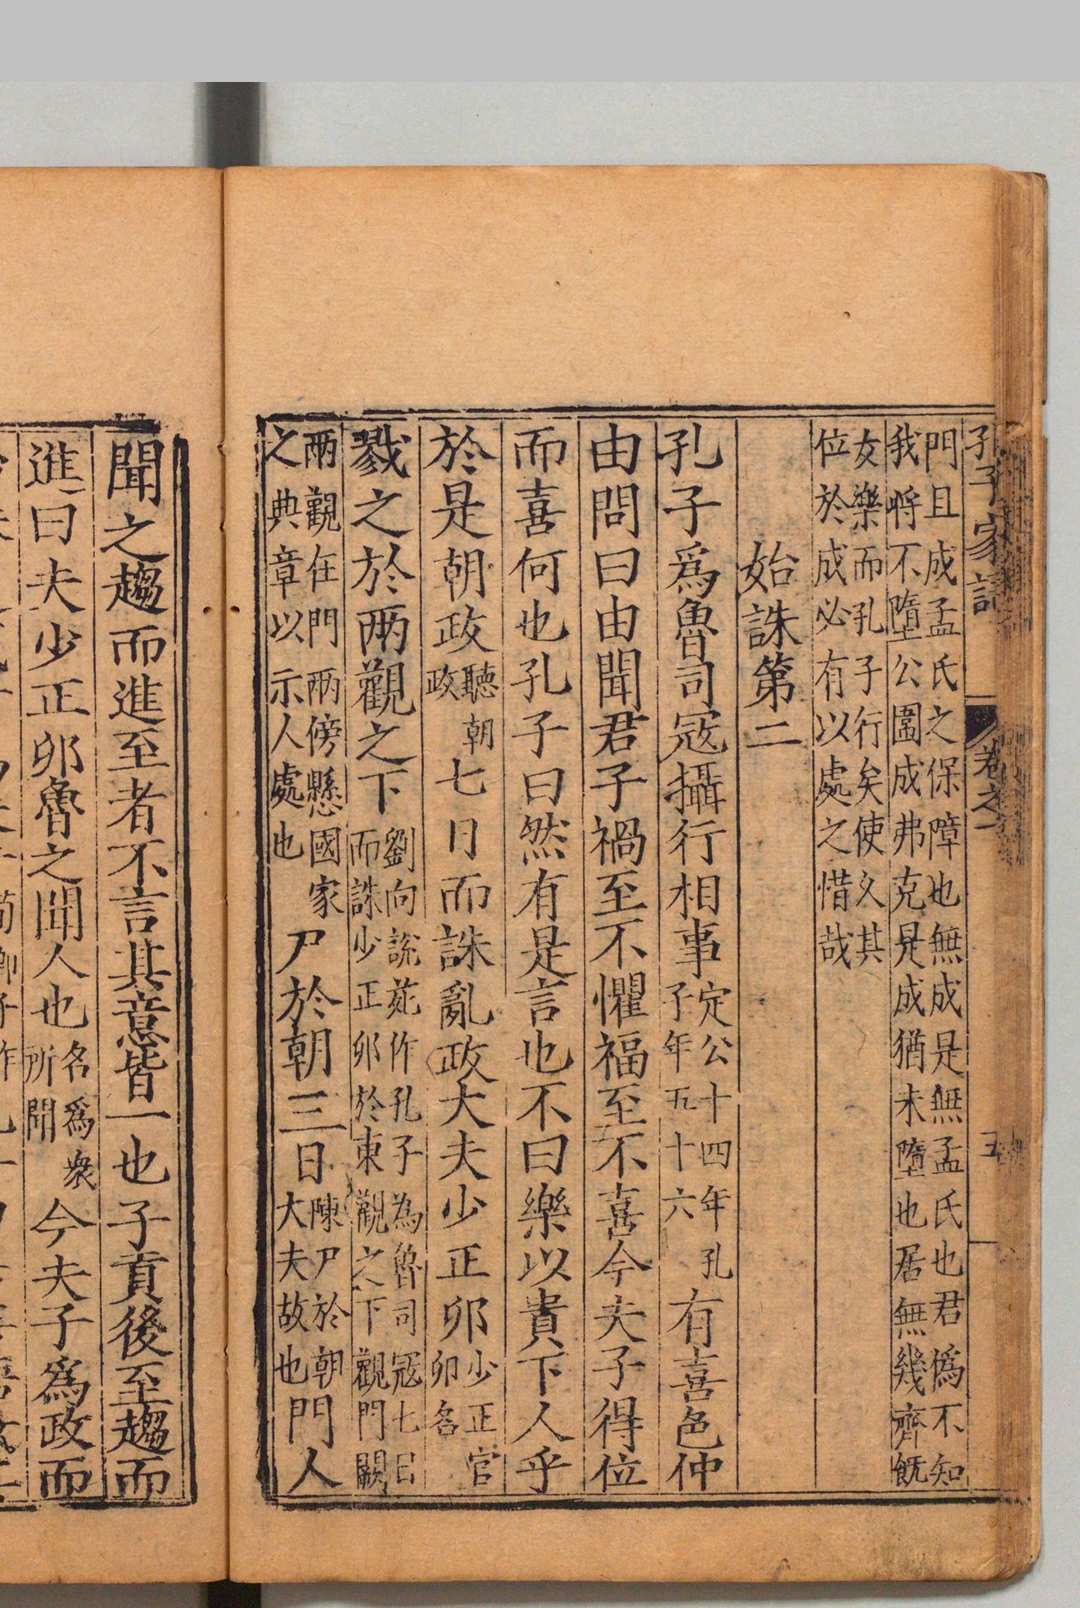 孔子家語 卷之一 五
門且成孟氏之保障也無成是無孟氏也君僞不知
我將不墮公圍成弗克是成猶未墮也居無幾齊
女樂而孔子行矣使久其
位於成必有以處之惜哉
始誅第二
孔子爲魯司冦攝行相事定公十四年孔子年五十六有喜色仲
由問曰由聞君子禍至不懼福至不喜今夫子得位
而喜何也孔子曰然有是言也不曰樂以貴下人乎
於是朝政聽朝政七日而誅亂政大夫少正卯少正官卯名
戮之於兩觀之下劉向說苑作孔子為魯司冦七日而誅少正卯於東觀之下觀門闕
兩觀在門兩傍懸國家之典章以示人處也尸於朝三日陳尸於朝大夫故也門人
聞之趨而進至者不言其意皆一也子貢後至趨而
進曰夫少正卯魯之聞人也名爲衆所聞今夫子爲政而